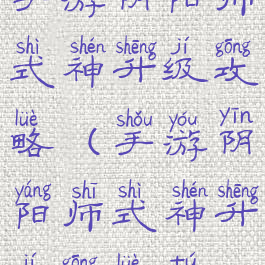 手游阴阳师
shì shén shēng jí gōng
式神升级攻
lüè shǒu yóu yīn
略（手游阴
yáng shī shì shén shēng
阳师式神升
jí gōng lüè